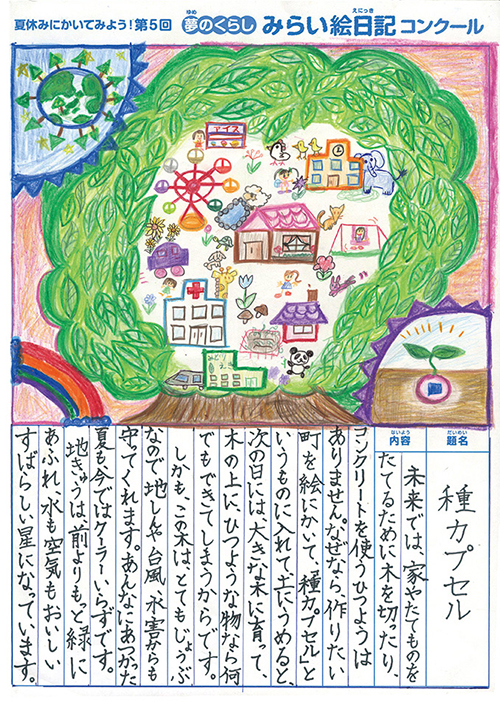 夏休みにかいてみよう！第5回 夢のくらし みらい絵日記 コンクール
ゆめ
えにっき
アイス
だいめい
題名
ないよう
内容
種カプセル
未来では、家やたてものを
たてるために木を切ったり、
コンクリートを使うひつようは
ありません。なぜなら、作りたい
町を絵にかいて、「種カプセル」と
いうものに入れて土にうめると、
次の日には大きな木に育って、
木の上に、ひつような物なら何
でもできてしまうからです。
しかも、この木は、とてもじょうぶ
なので地しんや台風、水害からも
守ってくれます。あんなにあつかった
夏も今ではクーラーいらずです。
地きゅうは、前よりもっと緑に
あふれ、水も空気もおいしい
すばらしい星になっています。